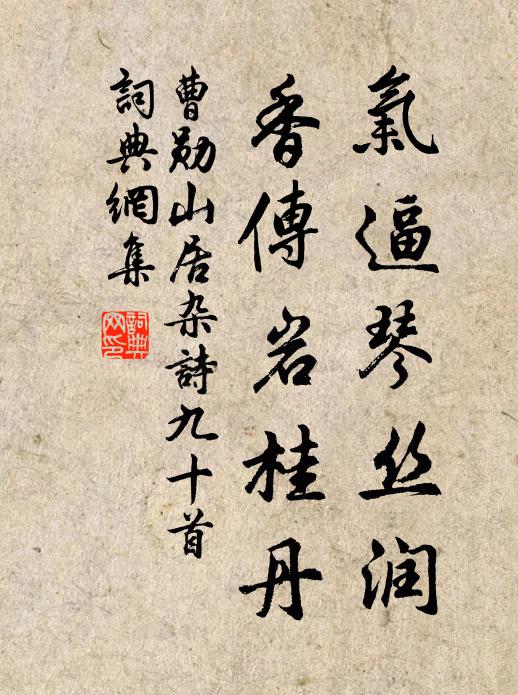 氣逼琴丝润
香傳岩桂丹
曹勋山居杂詩九十首
詞典網集
詞典网印